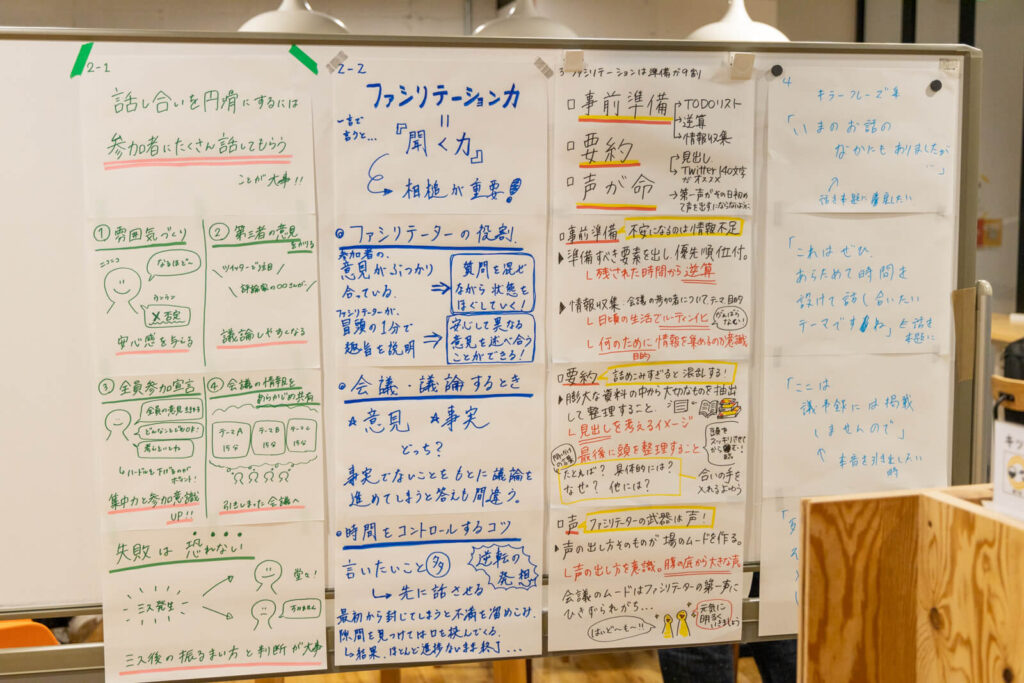 2-1
話し合いを円滑にするには
参加者にたくさん話してもらう
ことが大事!!
① 雰囲気づくり
ニコニコ
なるほどー
ウンウン
×否定
安心感を与える
② 第三者の意見
をかりる
ツイッターで注目
評論家の〇〇さんが、
議論しやすくなる
③ 全員参加宣言
全員の意見を聞きます
どんなことでもOK!
ハードルを下げるのが
ポイント!
集中力と参加意識
UP!!
④ 会議の情報を
あらかじめ共有
テーマA
15分
テーマB
15分
テーマC
15分
引きしまった会議へ
失敗は恐れない
ミス発生
堂々!
すみません
ミス後の振るまい方と判断が大事
2-2
ファシリテーション力
一言で
言うと…
=
『聞く力』
相槌が重要!
ファシリテーターの役割。
参加者の、
意見がぶつかり
合っている。
⇒
質問を混ぜ
ながら状態を
ほぐしていく!
ファシリテーターが、
冒頭の1分で
趣旨を説明
⇒
安心して異なる
意見を述べ合う
ことができる!
会議・議論するとき
★意見 ★事実
どっち?
事実でないことをもとに議論を
進めてしまうと答えも間違う。
時間をコントロールするコツ
言いたいこと多
↳先に話させる
逆転の
発想
最初から封じてしまうと、不満を溜めこみ、
隙間を見つけては口を挟んでくる。
↳結果、ほとんど進捗ないまま終了...
3 ファシリテーションは準備が9割
□事前準備
→TODOリスト
→逆算
→情報収集
□要約
→見出し
→Twitter 140文字
がオススメ
□声が命
→第一声がその日初め
て声を出すにならないように
□事前準備 不安になるのは情報不足
▶準備すべき要素を出し、優先順位付。
↳残された時間から逆算
▶情報収集:会議の参加者について テーマ 目的
↳日頃の生活でルーティン化
↳何のために情報を集めるのか意識
目的
□要約 詰めこみすぎると混乱する!
▶膨大な資料の中から大切なものを抽出
して整理すること、
↳見出しを考えるイメージ
最後に頭を整理すること
頭を
スッキリさせて
から
たとえば? 具体的には?
なぜ? 他には?
合いの手
を入れるように
□声 ファシリテーターの武器は声!
▶声の出し方そのものが場のムードを作る。
↳声の出し方を意識。腹の底から大きな声
会議のムードはファシリテーターの第一声に
ひきずられがち...
はいど〜も〜!!
元気に
明るく
いきましょう
4
キラーフレーズ集
「いまのお話の
なかにもありましたが
…」
話を本題に
「これはぜひ、
あらためて時間を
設けて話し合いたい
テーマですね」と話を
本題に
「ここは
議事録には掲載
しませんので」
本音を引き出したい
時